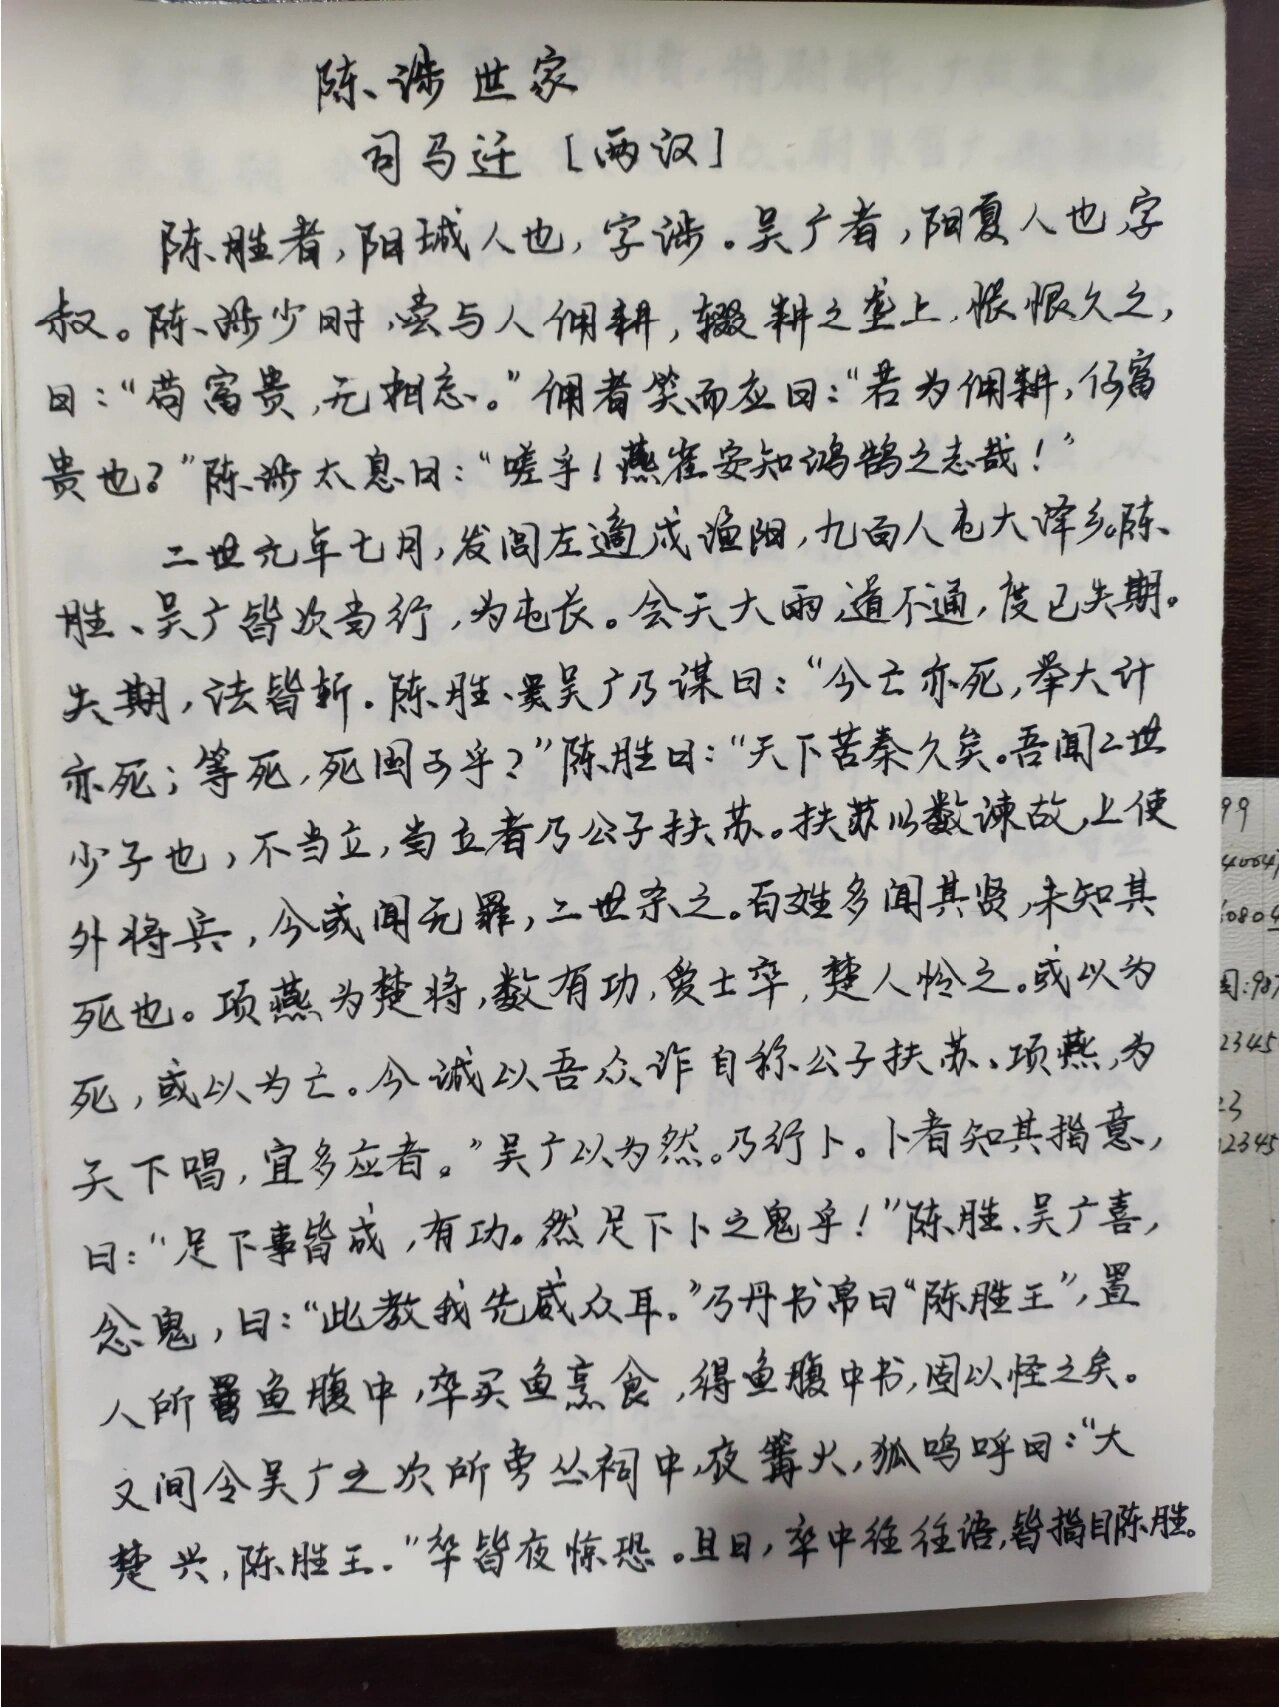 陈涉世家
司马迁［两汉］
陈胜者，阳城人也，字涉。吴广者，阳夏人也，字
叔。陈涉少时，尝与人佣耕，辍耕之垄上，怅恨久之，
曰：“苟富贵，无相忘。”佣者笑而应曰：“若为佣耕，何富
贵也？”陈涉太息曰：“嗟乎！燕雀安知鸿鹄之志哉！”
二世元年七月，发闾左適戍渔阳，九百人屯大泽乡。陈
胜、吴广皆次当行，为屯长。会天大雨，道不通，度已失期。
失期，法皆斩。陈胜、吴广乃谋曰：“今亡亦死，举大计
亦死；等死，死国可乎？”陈胜曰：“天下苦秦久矣。吾闻二世
少子也，不当立，当立者乃公子扶苏。扶苏以数谏故，上使
外将兵，今或闻无罪，二世杀之。百姓多闻其贤，未知其
死也。项燕为楚将，数有功，爱士卒，楚人怜之。或以为
死，或以为亡。今诚以吾众诈自称公子扶苏、项燕，为
天下唱，宜多应者。”吴广以为然。乃行卜。卜者知其指意，
曰：“足下事皆成，有功。然足下卜之鬼乎！”陈胜、吴广喜，
念鬼，曰：“此教我先威众耳。”乃丹书帛曰“陈胜王”，置
人所罾鱼腹中，卒买鱼烹食，得鱼腹中书，固以怪之矣。
又间令吴广之次所旁丛祠中，夜篝火，狐鸣呼曰：“大
楚兴，陈胜王。”卒皆夜惊恐。旦日，卒中往往语，皆指目陈胜。
99
2345
23
12345